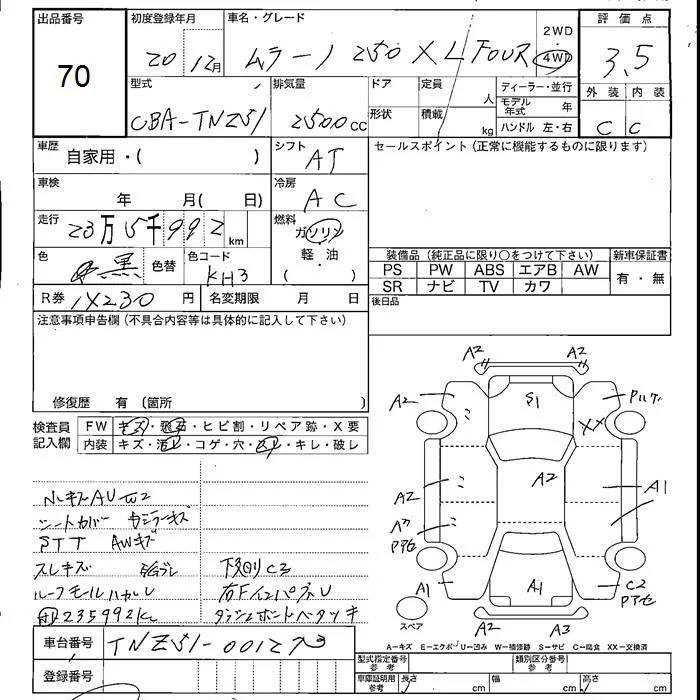 出品番号 初度登録年月 車名・グレード 2WD 評価点
70 20 12月 ムラーノ 250 XL FOUR 4WD 3.5
型式 排気量 ドア 定員 人 ディーラー・並行 外装 内装
CBA-TNZ51 2500cc 形状 積載 kg モデル年式 年 C C
ハンドル 左・右
車歴 自家用・( ) シフト AT セールスポイント(正常に機能するものに限ります)
車検 年 月( 日) 冷房 AC
走行 23万5千992km 燃料 ガソリン
軽・油
( )
色 黒 色替 色コード KH3
装備品(純正品に限り○をつけて下さい) 新車保証書
PS PW ABS エアB AW 有・無
SR ナビ TV カワ
R券 230円 名変期限 月 日 後日品
注意事項申告欄(不具合内容等は具体的に記入して下さい)
修復歴 有(箇所 )
検査員記入欄 FW キズ・飛石・ヒビ割・リペア跡・X要
内装 キズ・汚レ・コゲ・穴・スレ・キレ・破レ
A2 A2
A2 S1
XX
A2 A2 A1
アセ
A1 A1 C2
アセ
A2 A3
スペア
シートカバー
STT AWキズ
スレキズ 下廻りC3
ルーフモール
235992km
A-キズ E-エクボ U-凹み W-補修跡 S-サビ C-腐食 XX-交換済
車台番号 TNZ51-001273
型式指定番号 参考 類別区分番号 参考
登録番号 車庫証明用 参考 長さ cm 幅 cm 高さ cm